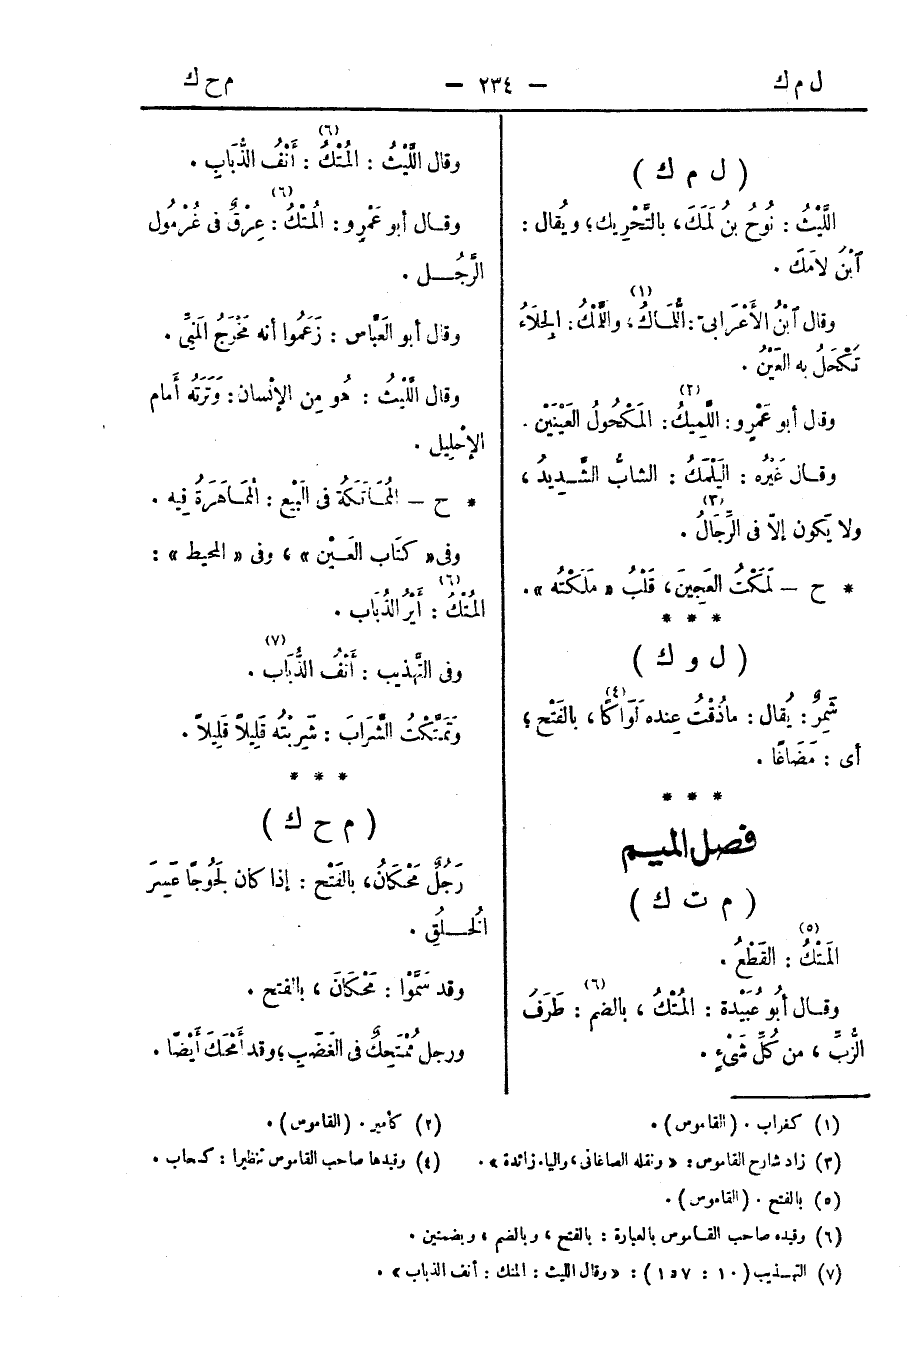 ل م ك
— ٢٣٤ —
م ح ك
( ل م ك )
اللَّيْثُ : نُوحُ بنُ لَمَكَ، بالتَّحْرِيك؛ ويُقال :
ٱبْنُ لامَكَ .
وقال ٱبْنُ الأَعْرَابِىّ : اللُّمَاكُ(١)، واللَّمْكُ : الجِلَاءُ
تَكْحَلُ به العَيْنُ .
وقال أبو عَمْرو : اللَّمِيكُ(٢) : المَكْحُولُ العَيْنَيْن .
وقـال غَيْرُه : اليَلْمَكُ : الشابُّ الشَّـدِيدُ ،
ولا يَكون إلاّ فى الرِّجَالُ(٣) .
* ح — لَمَكْتُ العَجِينَ، قَلْبُ « مَلَكْتُه ».
* * *
( ل و ك )
شَمِرٌ : يُقال : ماذُقْتُ عِنده لَوَاكًا(٤) ، بالفَتْح ؛
أى : مَضَاغًا .
* * *
فصل الميـم
( م ت ك )
المَتْكُ(٥) : القَطْعُ .
وقـال أبُو عُبَيْدة : المُتْكُ(٦) ، بالضم : طَرَفُ
الزُّبِّ ، من كُلِّ شَىْءٍ .
وقال اللَّيْثُ : المُتْكُ(٦) : أَنْفُ الذُّبَابِ .
وقـال أبو عَمْرٍو : المُتْكُ(٦) : عِرْقٌ فى غُرْمُول
الرَّجُـــل .
وقال أبو العَبَّاس : زَعَمُوا أنه مَخْرَجُ المَنِىِّ .
وقال اللَّيْثُ : هُو مِن الإنْسان : وَتَرَتُه أَمام
الإحْلِيل .
* ح — المُمَاتَكَةُ فى البَيْع : المُمَاهَرَةُ فِيه .
وفى« كتَاب العَــيْن » ، وفى « المحيط » :
المُتْكُ(٦) : أَيْرُ الذُّبَاب .
وفى التَّهْذِيب : أَنْفُ الذُّبَاب(٧) .
وتَمَتَّكْتُ الشَّرَابَ : شَرِبْتُه قَلِيلاً قَلِيلاً .
* * *
( م ح ك )
رَجُلٌ مَحْكَانُ، بالفَتْح : إذا كان لَجُوجًا عَسِرَ
الخُـــلُقِ .
وقد سَمَّوْا : مَحْكَانَ ، بالفتح .
ورجل مُمْتَحِكٌ فى الغَضَبِ ؛ وقد أَمْحَكَ أَيْضًا .
(١) كغراب . (القاموس) .
(٢) كأمير . (القاموس) .
(٣) زاد شارح القاموس : « ونقله الصاغانى ، والياء زائدة » .
(٤) وقيدها صاحب القاموس تنظيرا : كسحاب .
(٥) بالفتح . (القاموس) .
(٦) وقيده صاحب القـاموس بالعبارة : بالفتح ، وبالضم ، وبضمتين .
(٧) التهـذيب (١٠ : ١٥٧) : « وقال الليث : المتك : أنف الذباب » .